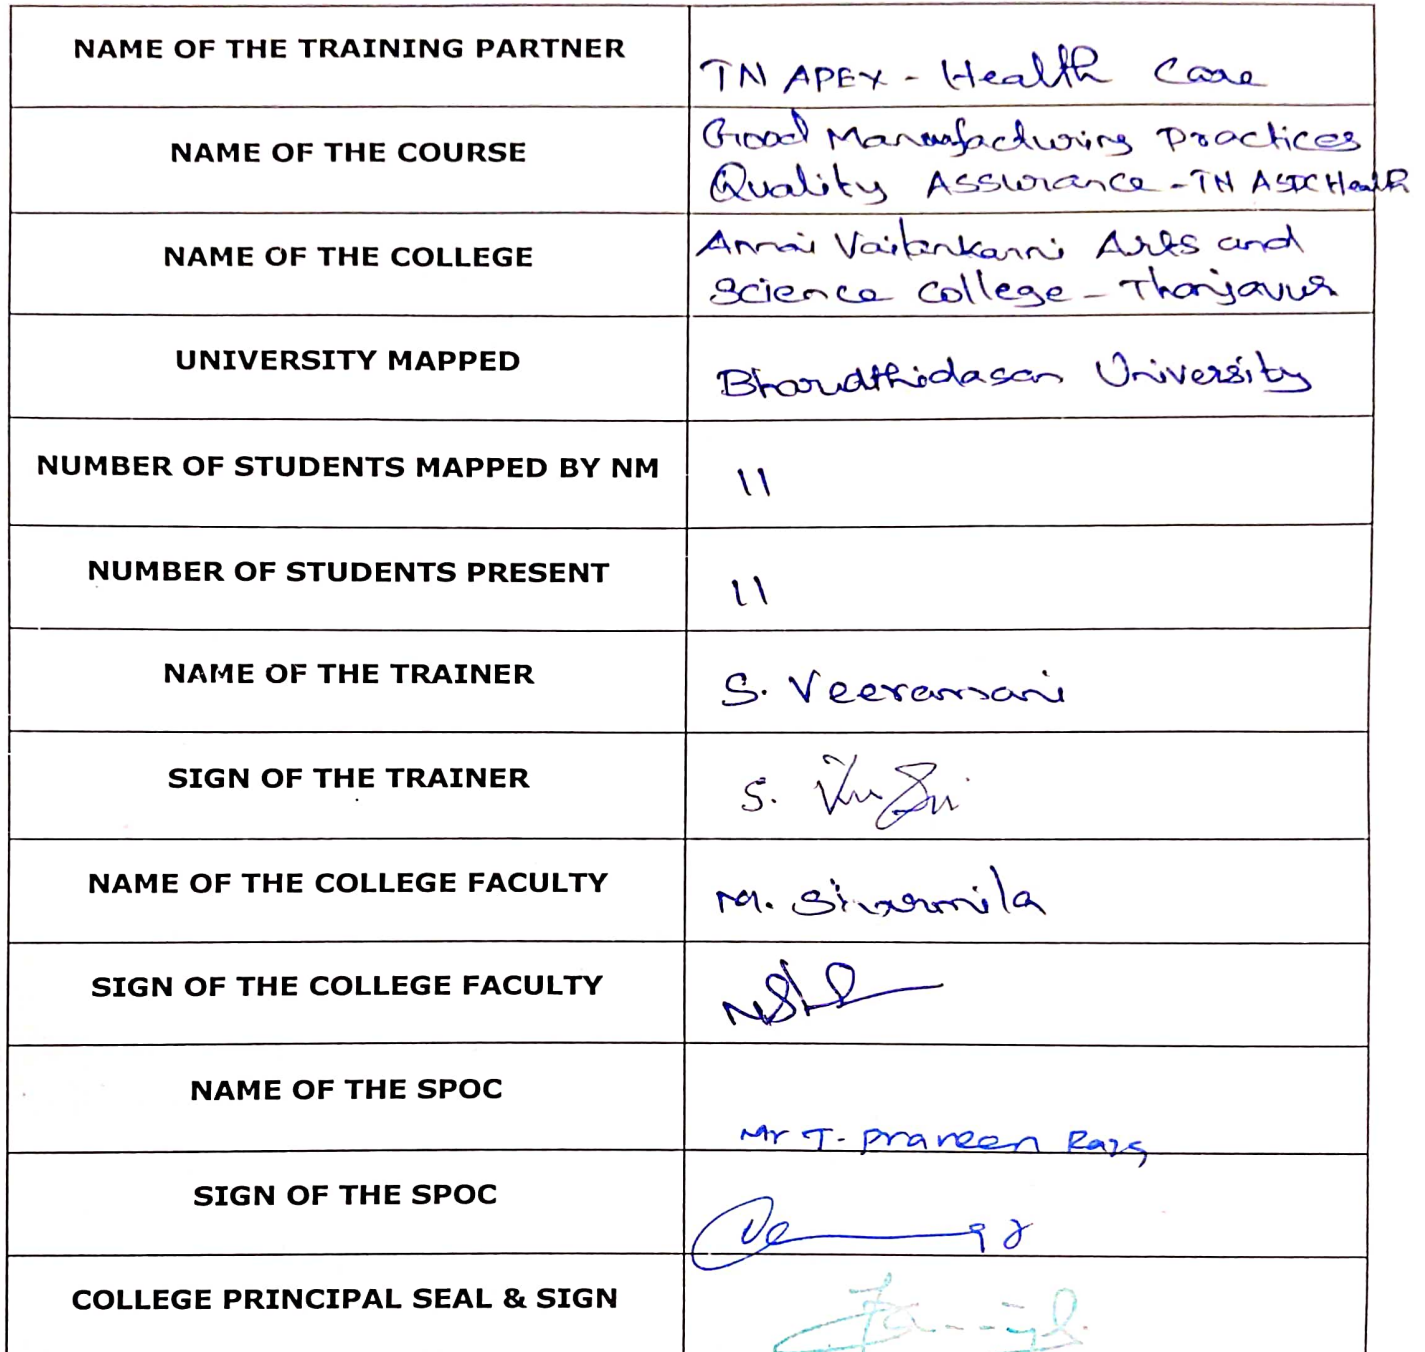 NAME OF THE TRAINING PARTNER
TN APEX - Health Care
NAME OF THE COURSE
Good Manufacturing Practices
Quality Assurance - TN ASDC Health
NAME OF THE COLLEGE
Annai Vailankanni Arts and
Science College - Thanjavur
UNIVERSITY MAPPED
Bharathidasan University
NUMBER OF STUDENTS MAPPED BY NM
11
NUMBER OF STUDENTS PRESENT
11
NAME OF THE TRAINER
S. Veeramani
SIGN OF THE TRAINER
S.
NAME OF THE COLLEGE FACULTY
M.
SIGN OF THE COLLEGE FACULTY
NAME OF THE SPOC
Mr T. Praveen
SIGN OF THE SPOC
COLLEGE PRINCIPAL SEAL & SIGN